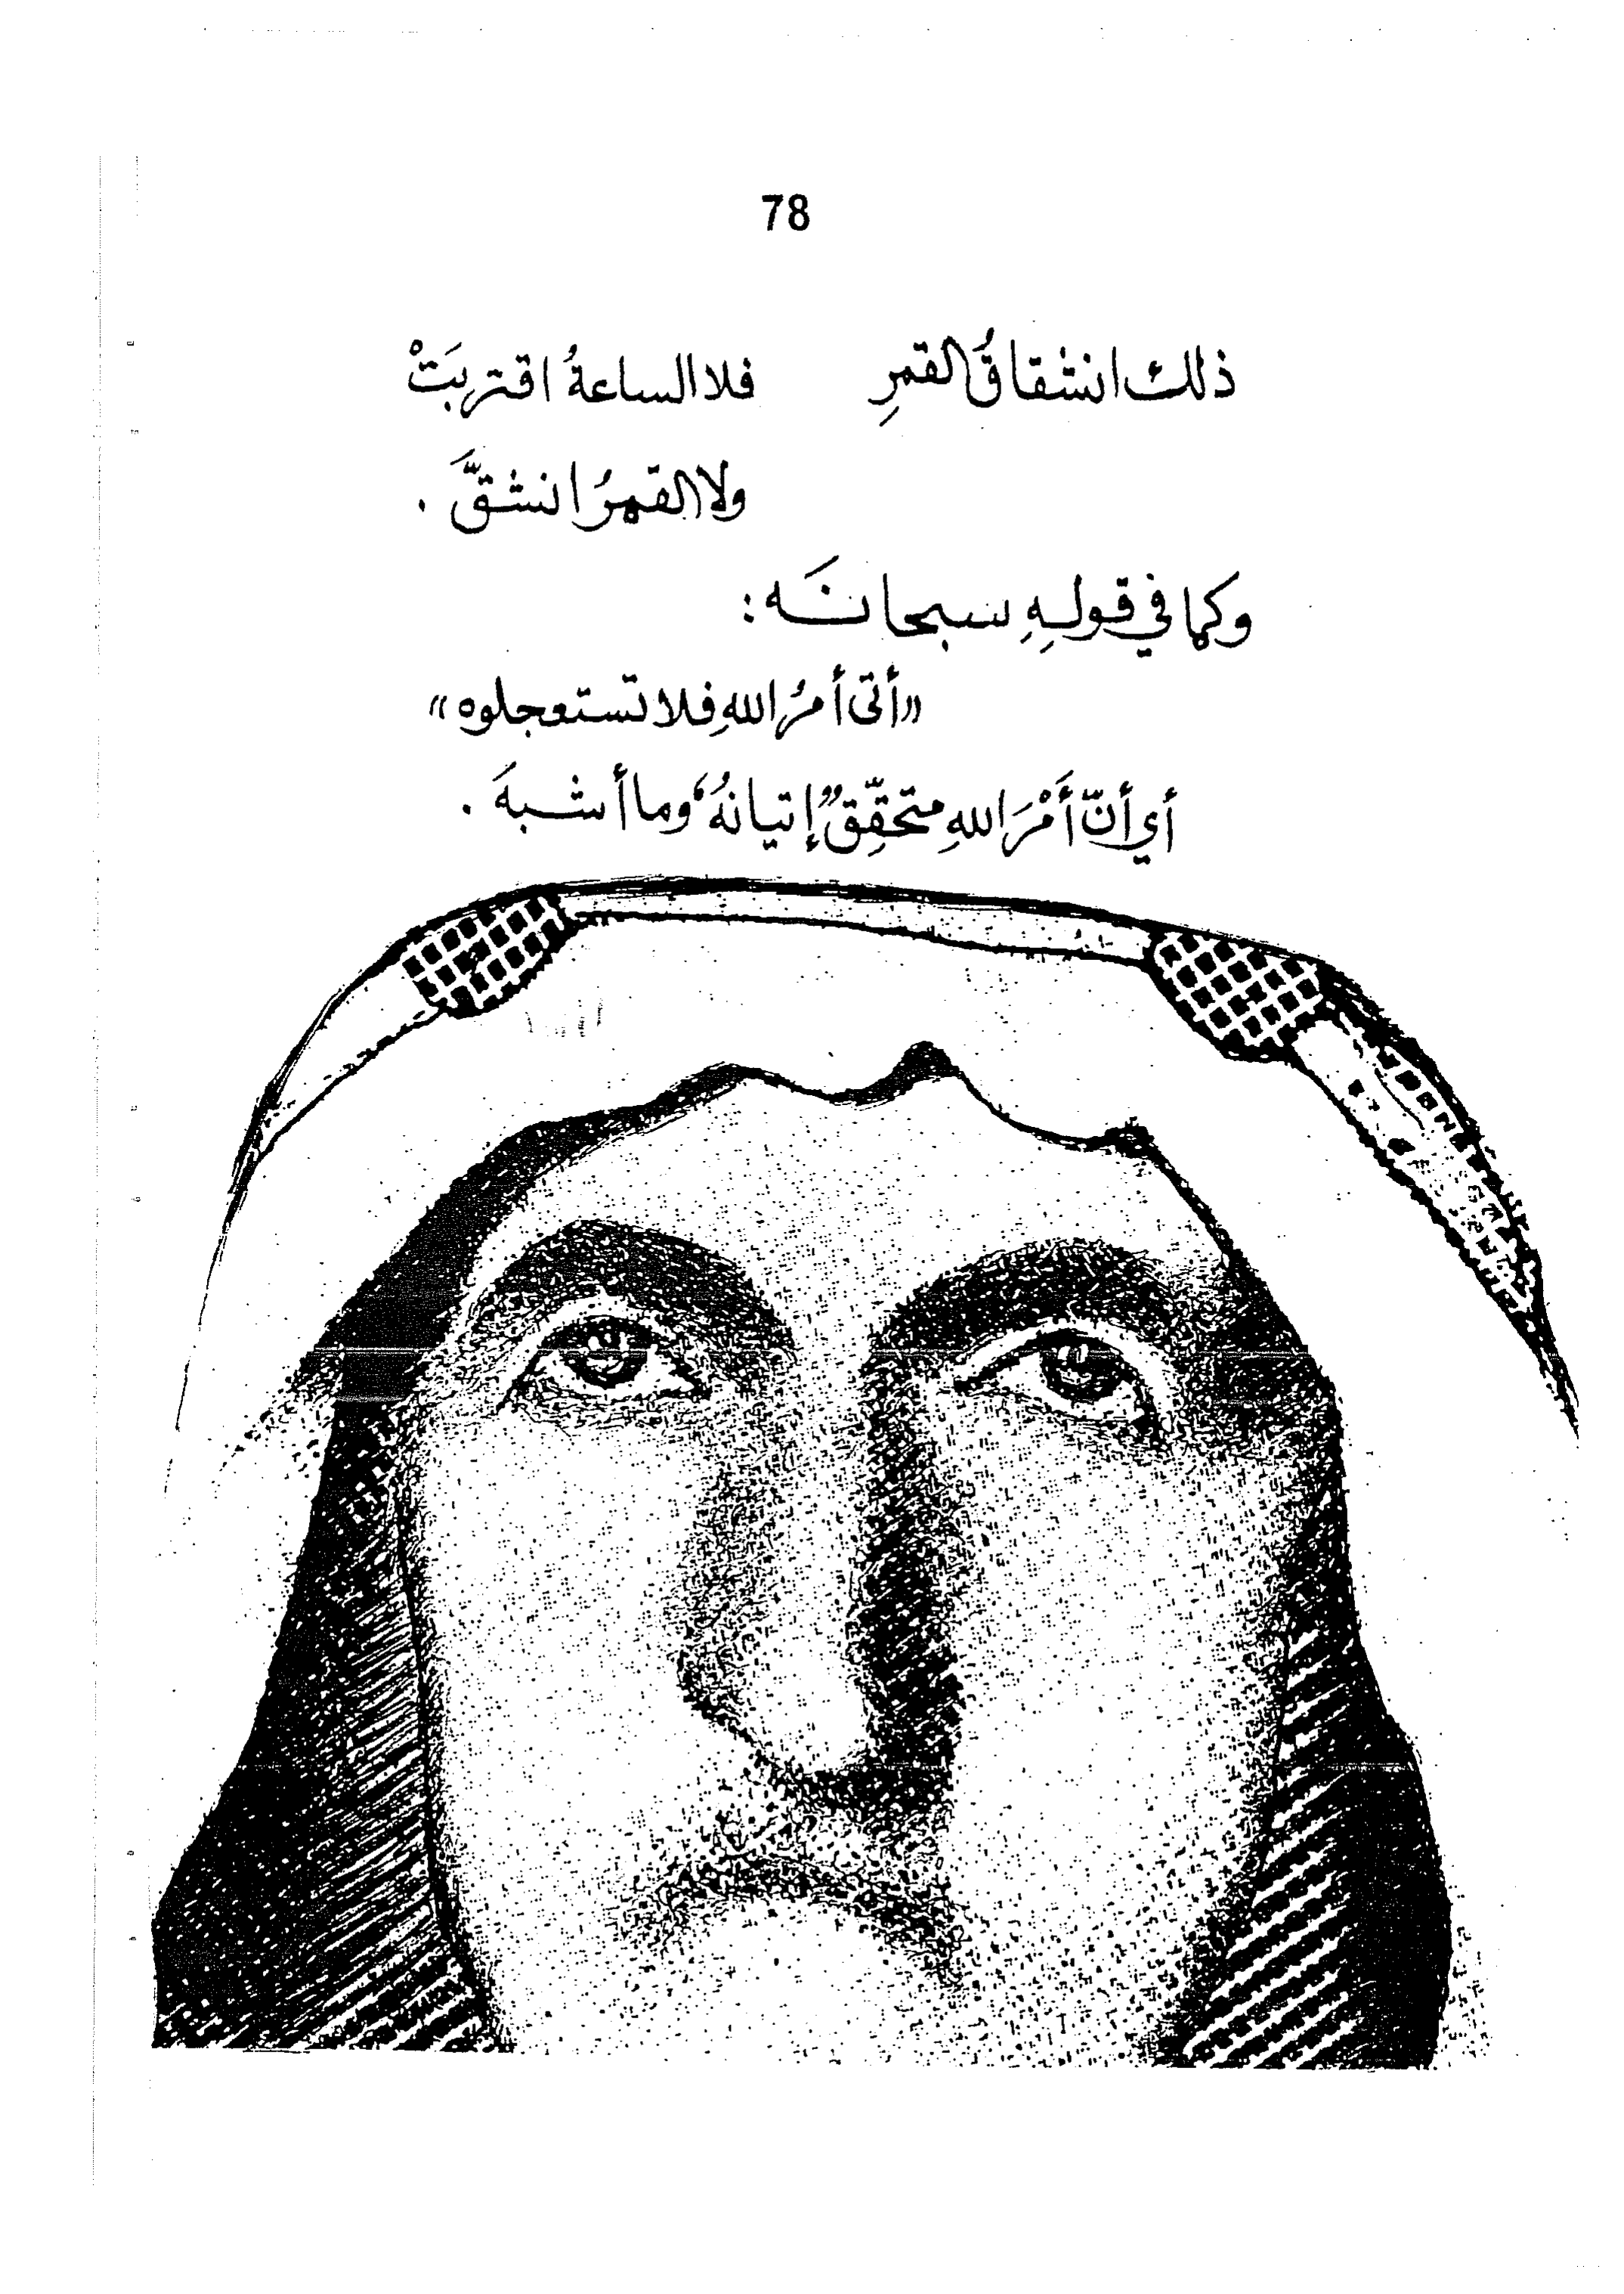 78
ذلك انشقاقُ القمرِ فلا الساعةُ اقتربَتْ
ولا القمرُ انشقَّ .
وكما في قولهِ سبحانَه :
«أتى أمرُ اللهِ فلا تستعجلوه»
أي أنّ أَمْرَ اللهِ متحقِّق "إتيانهُ" وما أشبهَ .